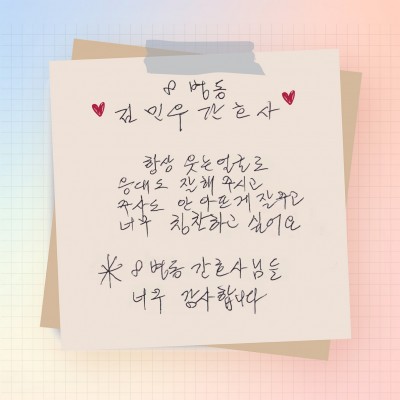 8병동
김민우 간호사
항상 웃는얼굴로
응대도 잘해주시고
주사도 안아프게 잘주고
너무 칭찬하고 싶어요
* 8병동 간호사님들
너무 감사합니다